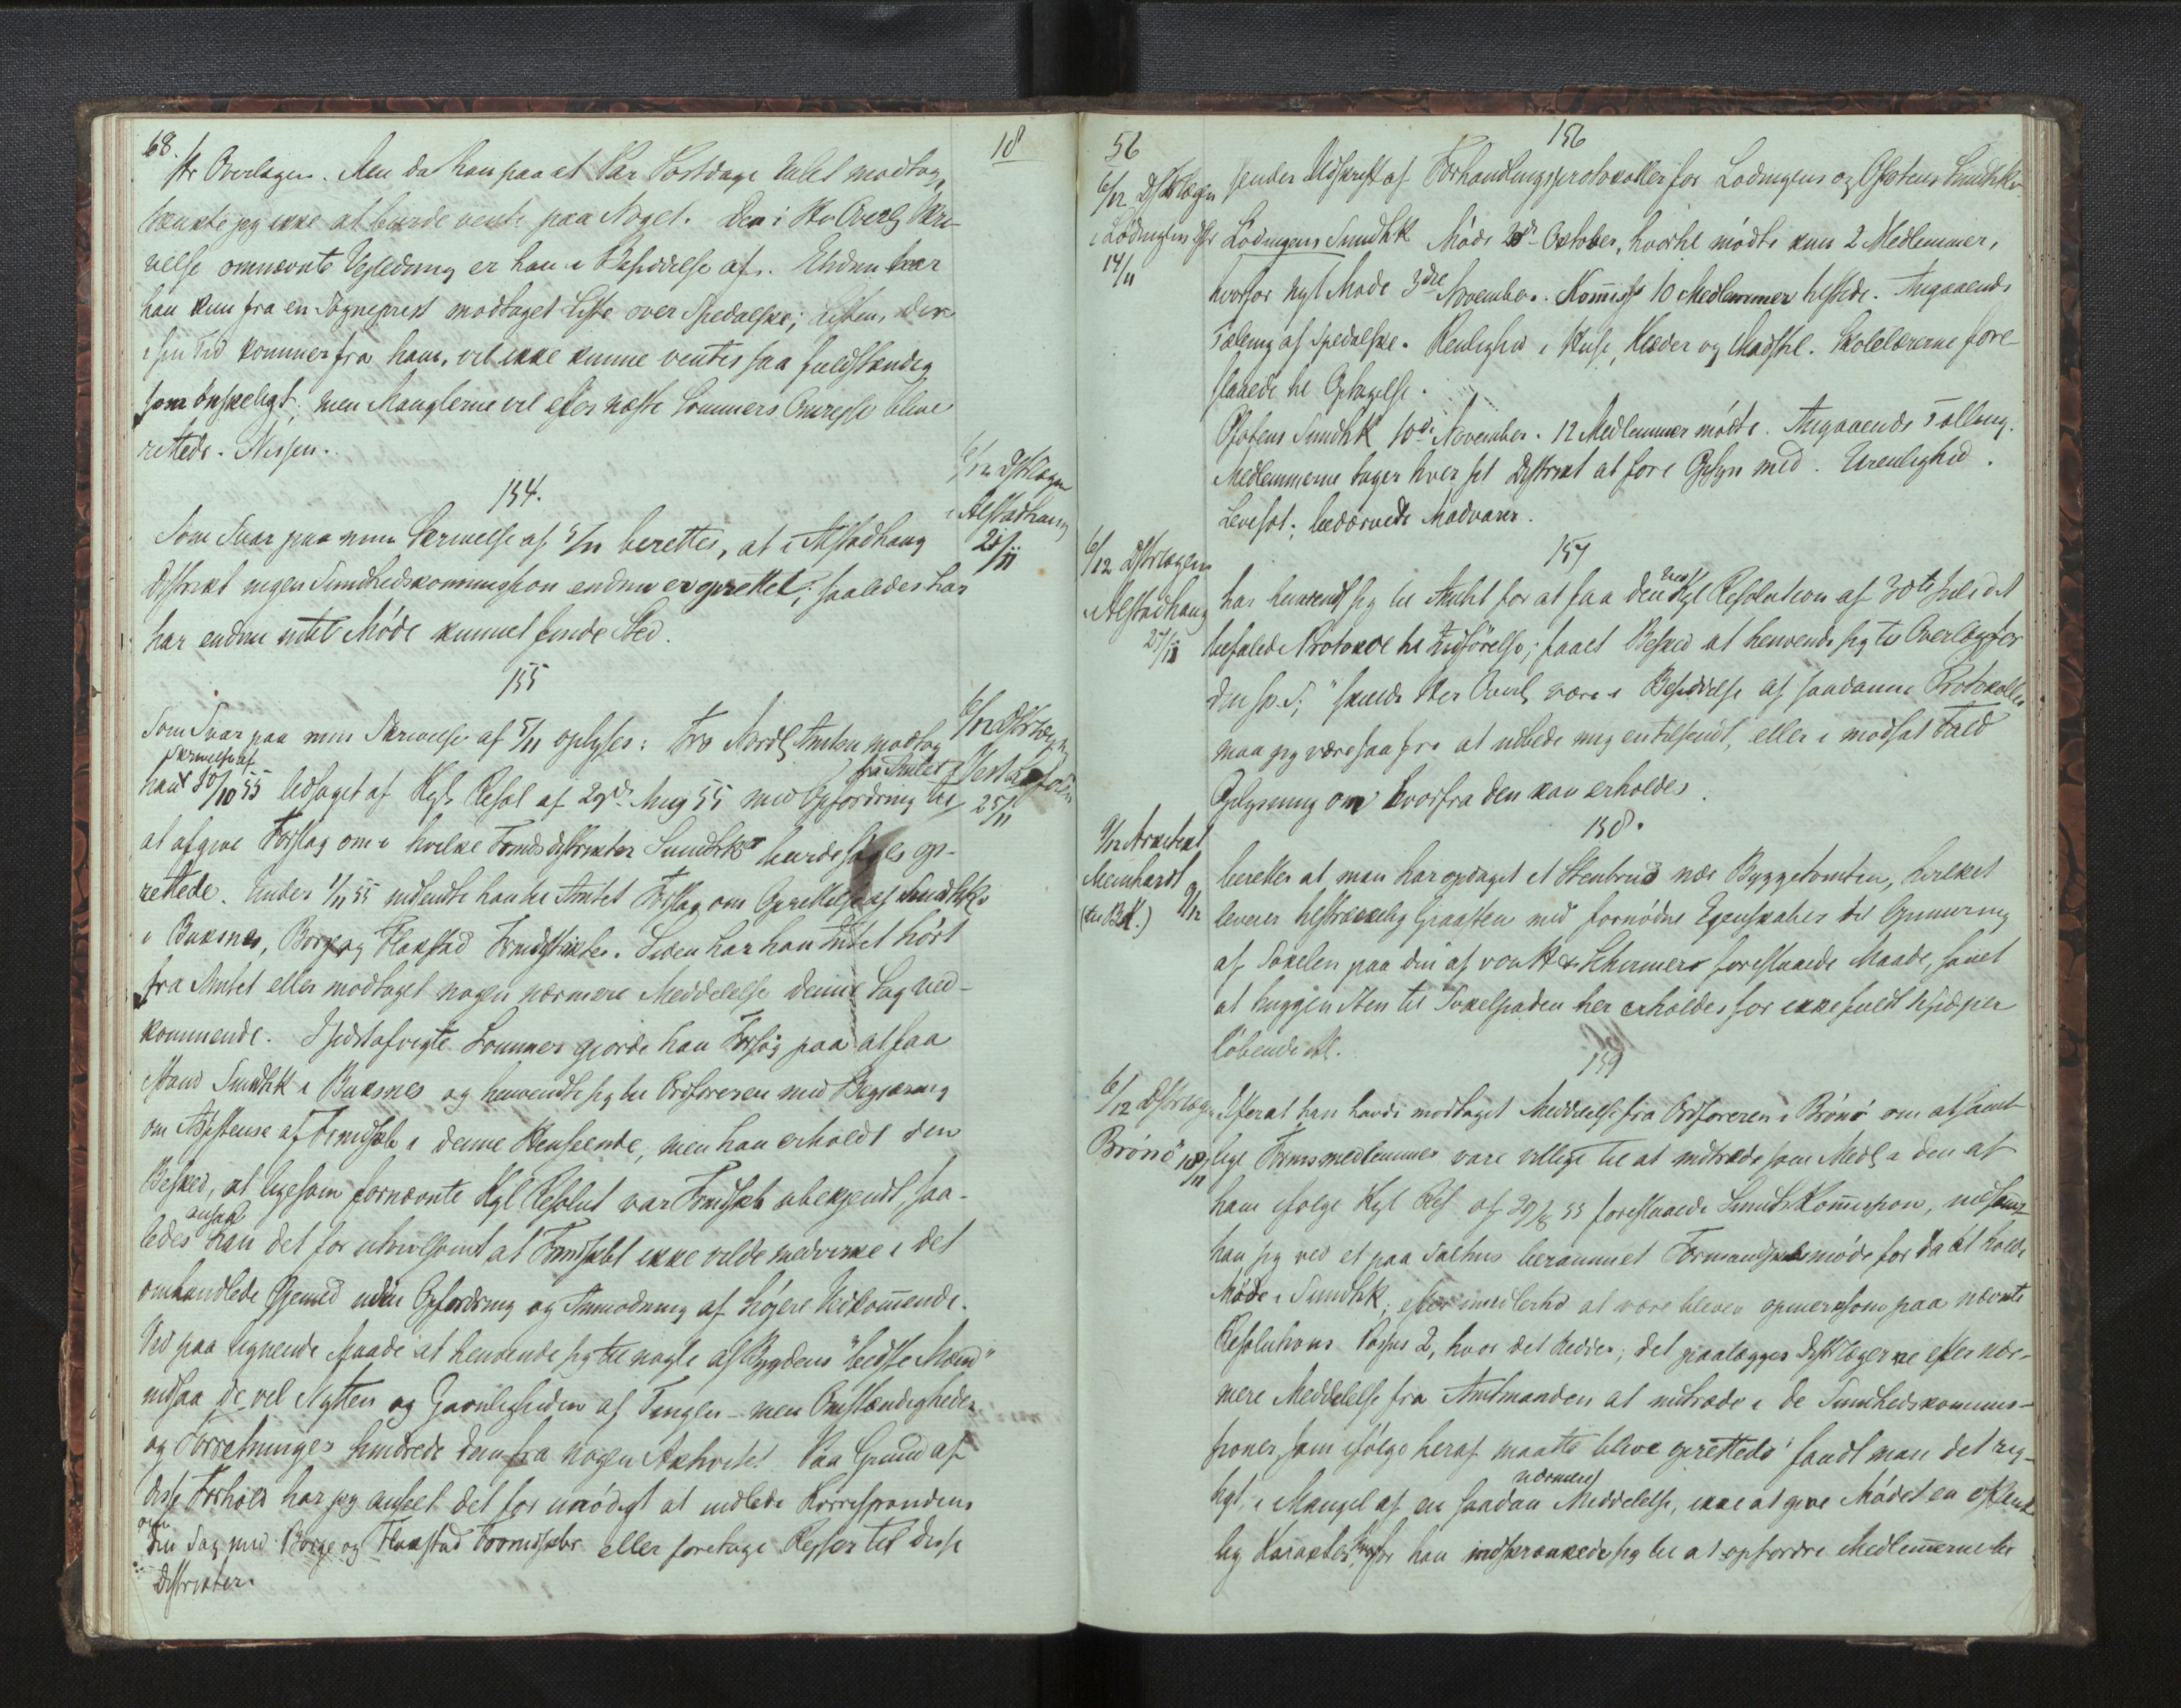 68.
18
Hr Overlægen. Men da han paa et Par Postdage Intet modtog,
tænkte jeg ikke at burde vente paa Noget. Den i Hr Overlg Skri-
velse omnævnte Vejledning er han i Besiddelse af. Endnu har
han kun fra en Sogneprest modtaget Liste over Spedalske; Listen, der
i sin Tid kommer fra ham, vil ikke kunne ventes saa fuldstændig
som ønskeligt, men Manglerne vil efter næste Sommers Omrejse blive
rettede. Nissen.
154.
6/12 DstLægen
i Alstadhaug
21/11
Som Svar paa min Skrivelse af 5/11 berettes, at i Alstadhaug
Distrikt ingen Sundhedskommission endnu er oprettet; saaledes har
har endnu intet Møde kunnet finde Sted.
155
6/12 DstrLægen
i Vest Lofoten
25/11
Som Svar paa min Skrivelse af 5/11 oplyses: Fra Nordl Amten modtog
Skrivelse af
fra Amtet
han 30/10 55 Udtoget af Kgl. Resol af 29de Aug 55 med Opfordring til
at afgive Forslag om i hvilke Formdsdistrikter Sundhk burde søges op-
rettede. Under 1/11 55 indsendte han til Amtet Forslag om Oprettelse af Sundhk
i Buksnes, Borge og Flakstad Formdsdistrikter. Siden har han Intet hørt
fra Amtet eller modtaget nogen nærmere Meddelelse denne Sag ved-
kommende. I sidstafvigte Sommer gjorde han Forsøg paa at faa
istand Sundhk i Buksnes og henvendte sig til Ordføreren med Begjæring
om Assistense af Formdskb i denne Henseende, men han erholdt den
Besked, at ligesom fornævnte Kgl Resolut var Formdskb ubekjendt, saa-
ansaa
ledes han det for utvivlsomt at Formdskbt ikke vilde medvirke i det
omhandlede Øjemed uden Opfordring og Anmodning af højere Vedkommende.
Ved paa lignende Maade at henvende sig til nogle af Bygdens "bedste Mænd"
indsaa de vel Nytten og Gavnligheden af Tingen - men Omstændigheder
og Forretninger hindrede dem fra nogen Aktivitet. Paa Grund af
disse Forhold har jeg anseet det for unødigt at indlede Korrespondens
om
den Sag med Borge og Flakstad Formdskbr eller foretage Rejser til disse
Distrikter.
56
156
6/12 DstrLægen
i Lødingens Dstr
14/11
sender Udskrift af Forhandlingsprotokollen for Lødingens og Ofotens Sundhk.
Lødingens Sundhk Møde 20de Oktober, hvortil mødte kun 2 Medlemmer,
hvorfor nyt Møde 3die November. Kom̄iss 10 Medlemmer tilstede. Angaaende
Tælling af Spedalske. Renlighed i Huse, Klæder og Madstel. Skolelærerne fore-
slaaede til Optagelse.
Ofotens Sundhk 10de November. 12 Medlemmer mødte. Angaaende Tælling.
Medlemmerne tager hver sit Distrikt at føre Opsyn med. Urenlighed.
Levesæt; bedærvede Madvarer.
157
6/12 DstrLægen
i Alstadhaug
27/11
har henvendt sig til Amtet for at faa den ved Kgl Resolution af 30te Juli d A
befalede Protokol til Indførelse; faaet Besked at henvende sig til Overlægen for
den sp. S; "skulde Her Overl være i Besiddelse af saadanne Protokoller
maa jeg være saa fri at udbede mig en tilsendt, eller i modsat Fald
Oplysning om hvorfra den kan erholdes.
158.
9/12 Arkitekt
Meinhardt
(til BK.)
9/12
beretter at man har opdaget et Stenbrud nær Byggetomten, hvilket
leverer tilstrækkelig Graasten med fornødne Egenskaber til Opmuring
af Sokelen paa den af von H & Schirmer foreslaaede Maade, samt
at huggen Sten til Sokelfoden her erholdes for ikke fuldt Spd per
løbende Al.
159
6/12 DstrLægen
Brønø
18/11
Efterat han havde modtaget Meddelelse fra Ordføreren i Brønø om at samt-
lige Formsmedlemmer vare villige til at indtræde som Medl i den at
ham ifølge Kgl Res af 29/8 55 foreslaaede SundhKom̄ission, indfandt
han sig ved et paa Salhus berammet Formandskabsmøde for da at holde
Møde i Sundhk; efter imidlertid at være bleven opmerksom paa nævnte
Resolutions Passus 2, hvor det hedder; det paalægges DistrLægerne efter nær-
mere Meddelelse fra Amtmanden at indtræde i de Sundhedskommis-
sioner, som ifølge heraf maatte blive oprettede" fandt man det rig-
nærmere
tigt, i Mangel af en saadan Meddelelse, ikke at give Mødet en offent-
lig Karakter, hvorfor han indskrænkede sig til at opfordre Medlem̄erne til